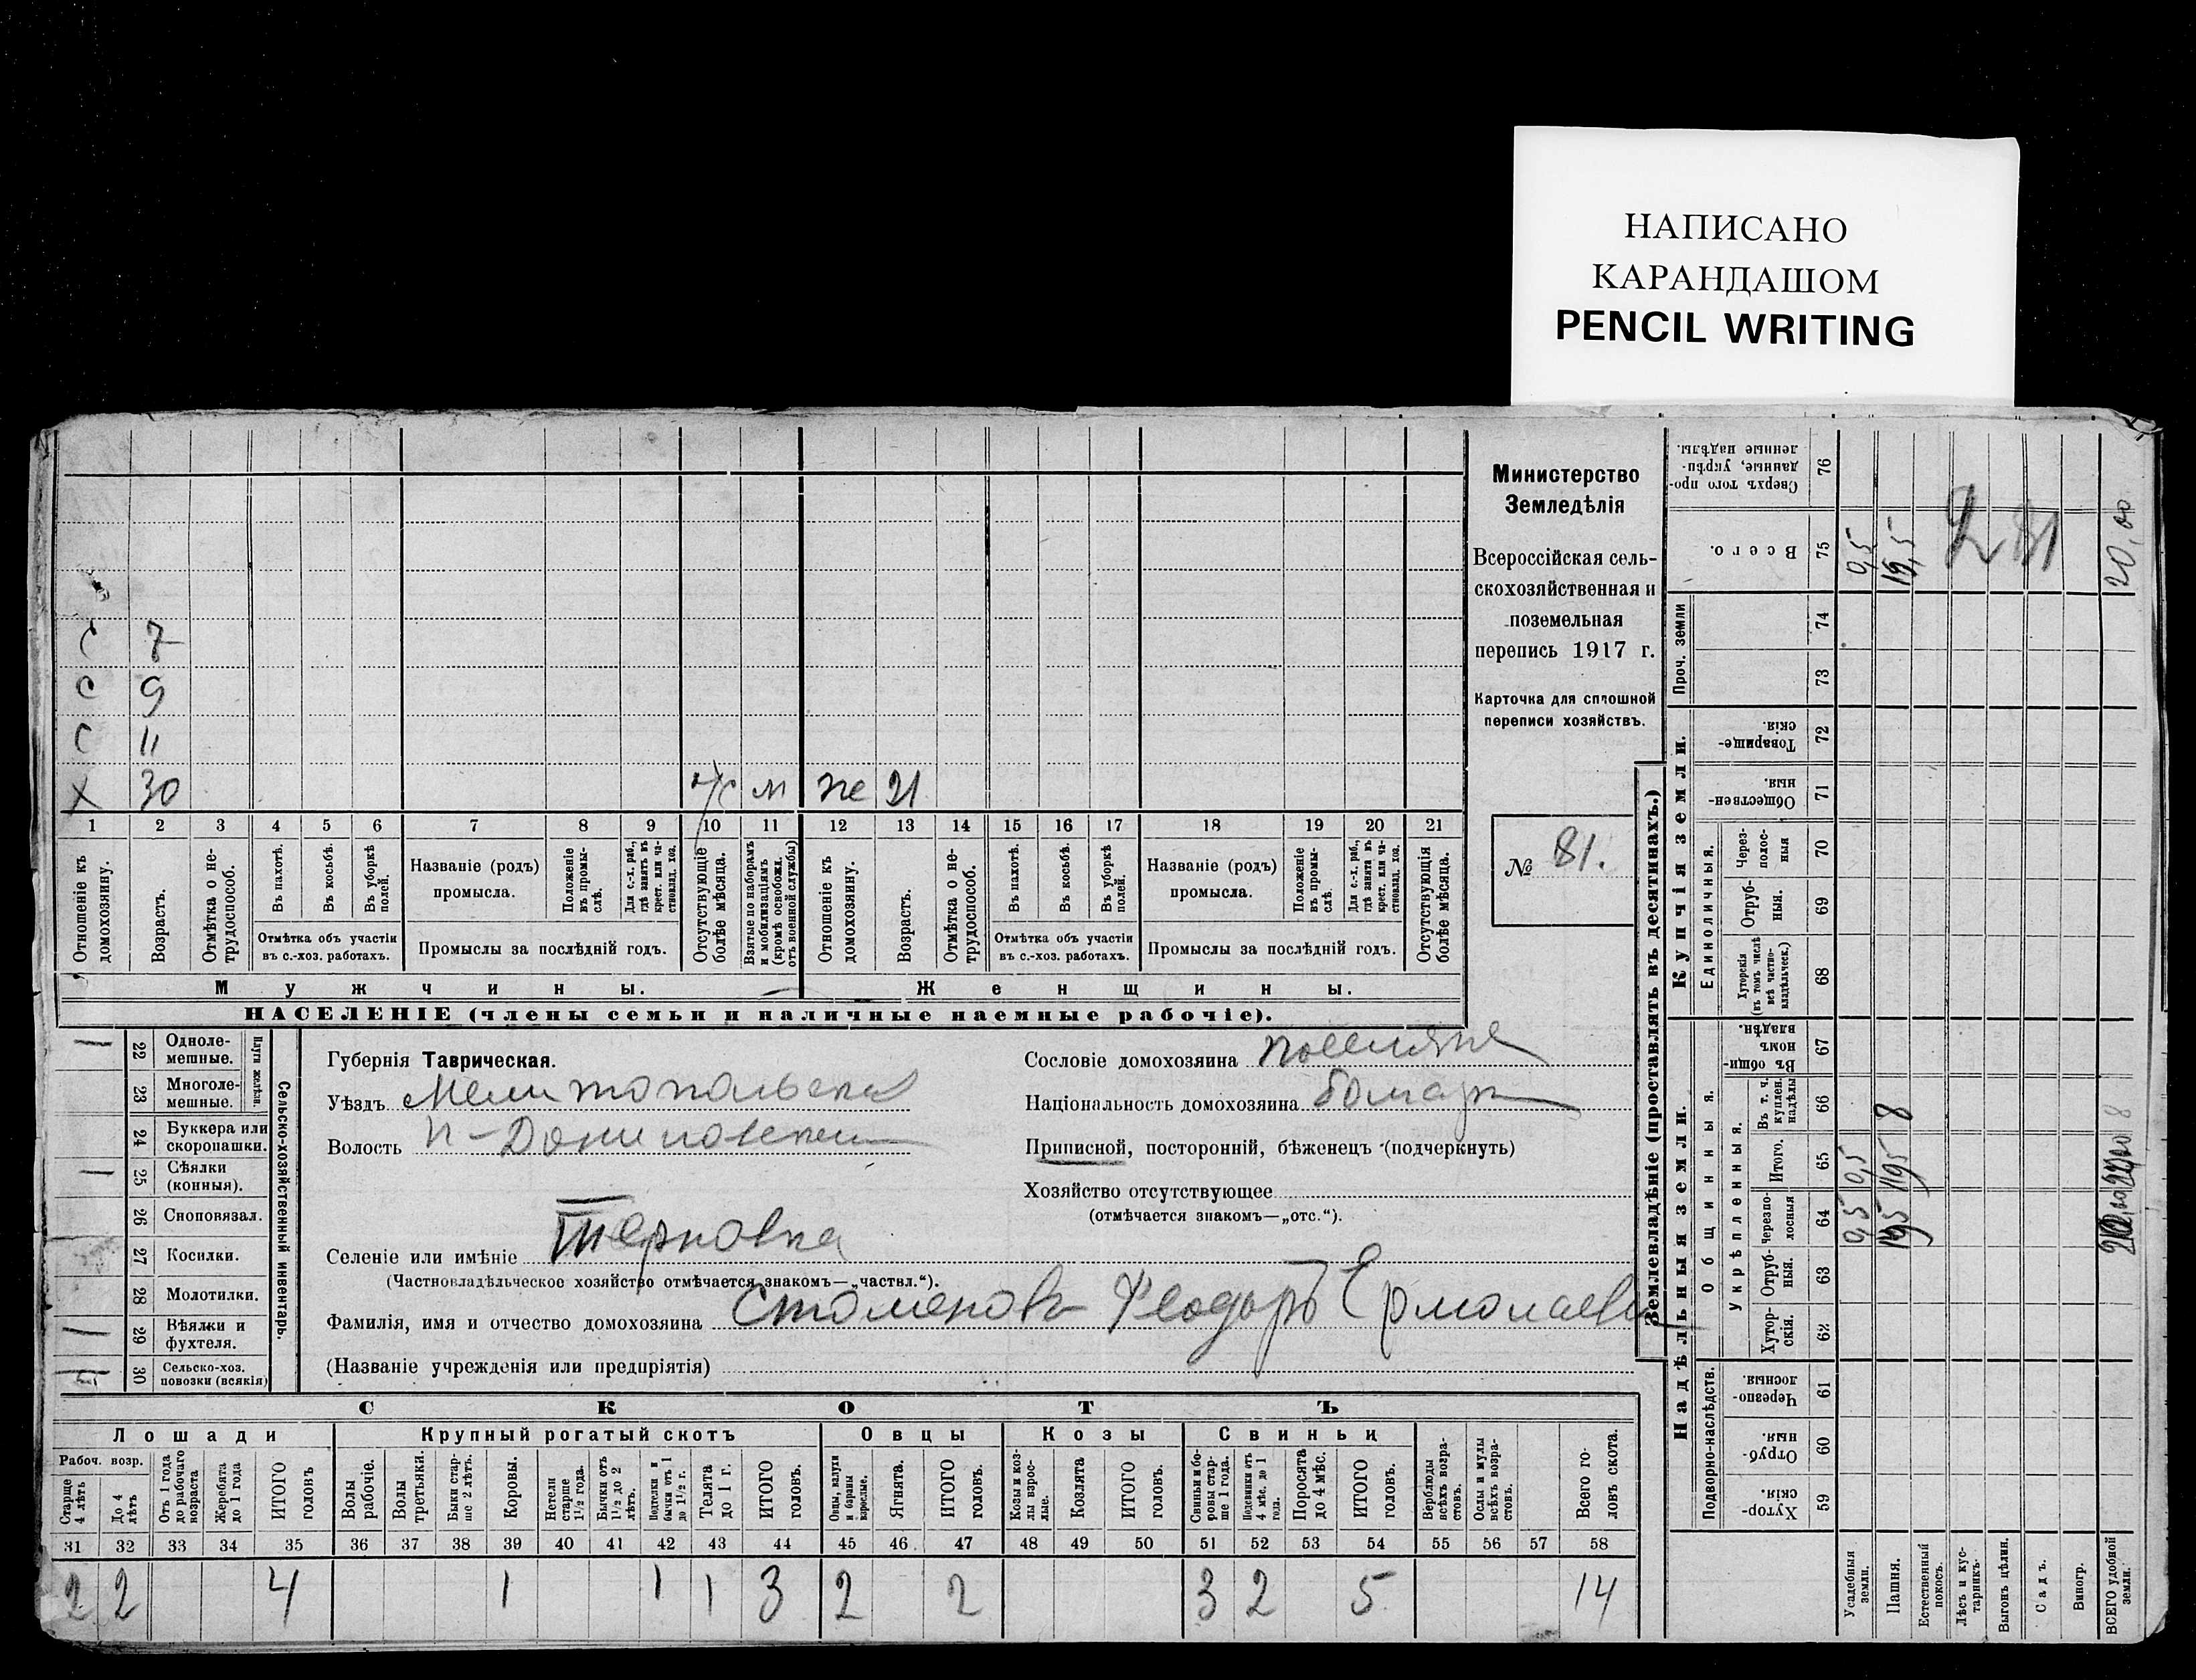 НАПИСАНО
КАРАНДАШОМ
PENCIL WRITING
Министерство
Земледѣлія
Всероссійская сель-
скохозяйственная и
поземельная
перепись 1917 г.
Карточка для сплошной
переписи хозяйствъ.
№ 81.
С 7
С 9
С 11
Х 30 м же 21
1 2 3 4 5 6 7 8 9 10 11 12 13 14 15 16 17 18 19 20 21
Отношеніе къ домохозяину.
Возрастъ.
Отмѣтка о не-трудоспособ.
Въ пахотѣ.
Въ косьбѣ.
Въ уборкѣ полей.
Отмѣтка объ участіи
въ с.-хоз. работахъ.
Названіе (родъ)
промысла.
Положеніе въ промы-слѣ.
Для с.-х. раб., гдѣ занятъ въ крест. или ча-стновлад. хоз.
Промыслы за послѣдній годъ.
Отсутствующіе болѣе мѣсяца.
Взятые по наборамъ и мобилизаціямъ (кромѣ освобожд. отъ военной службы)
Отношеніе къ домохозяину.
Возрастъ.
Отмѣтка о не-трудоспособ.
Въ пахотѣ.
Въ косьбѣ.
Въ уборкѣ полей.
Отмѣтка объ участіи
въ с.-хоз. работахъ.
Названіе (родъ)
промысла.
Положеніе въ промы-слѣ.
Для с.-х. раб., гдѣ занята въ крест. или ча-стновлад. хоз.
Промыслы за послѣдній годъ.
Отсутствующія болѣе мѣсяца.
Мужчины.
Женщины.
НАСЕЛЕНІЕ (члены семьи и наличные наемные рабочіе).
22 Одноле-мешные.
23 Многоле-мешные.
Плуги желѣзн.
24 Буккера или скоропашки.
25 Сѣялки (конныя).
26 Сноповязал.
27 Косилки.
28 Молотилки.
29 Вѣялки и фухтеля.
30 Сельско-хоз. повозки (всякія)
Сельско-хозяйственный инвентарь.
Губернія Таврическая.
Уѣздъ Мелитопольскій
Волость
Селеніе или имѣніе Терновка
(Частновладѣльческое хозяйство отмѣчается знакомъ—„частвл.“).
Фамилія, имя и отчество домохозяина Стоменовъ Феодоръ Ермолаевъ
(Названіе учрежденія или предпріятія)
Сословіе домохозяина поселяне
Національность домохозяина болгар
Приписной, посторонній, бѣженецъ (подчеркнуть)
Хозяйство отсутствующее
(отмѣчается знакомъ—„отс.“).
СКОТЪ
Лошади Крупный рогатый скотъ Овцы Козы Свиньи
Рабоч. возр.
Старше 4 лѣтъ
До 4 лѣтъ
Отъ 1 года до рабочаго возраста
Жеребята до 1 года
ИТОГО головъ
Волы рабочіе.
Волы третьяки.
Быки стар-ше 2 лѣтъ.
Коровы.
Нетели старше 1½ года.
Бычки отъ 1½ до 2 лѣтъ.
Подтелки и бычки отъ 1 до 1½ г.
Телята до 1 г.
ИТОГО головъ.
Овцы, валухи и бараны взрослые.
Ягнята.
ИТОГО головъ.
Козы и коз-лы взрос-лые.
Козлята
ИТОГО головъ.
Свиньи и бо-ровы стар-ше 1 года.
Подсвинки отъ 4 мѣс. до 1 года.
Поросята до 4 мѣс.
ИТОГО головъ.
Верблюды всѣхъ возра-стовъ.
Ослы и мулы всѣхъ возра-стовъ.
Всего го-ловъ скота.
31 32 33 34 35 36 37 38 39 40 41 42 43 44 45 46 47 48 49 50 51 52 53 54 55 56 57 58
2 2 4 1 1 1 3 2 2 3 2 5 14
Землевладѣніе (проставлять въ десятинахъ.)
Сверхъ того про-данные, укрѣп-ленные надѣлы. 76
Всего. 75 0,5 19,5 20,00
281
Проч. земли 74
73
Купчія земли.
Товарище-скія. 72
Обществен-ныя. 71
Единоличныя.
Через-полос-ныя 70
Отруб-ныя. 69
Хуторскія (въ томъ числѣ всѣ частно-владѣльческ.) 68
Надѣльныя земли.
Общинныя.
Въ общин-номъ владѣн. 67
Укрѣпленныя.
Въ т. ч. куплен. надѣлы 66 8 8
Итого. 65 0,5 19,5
Черезпо-лосныя 64 0,5 19,5
Отруб-ныя. 63
Хутор-скія. 62
Подворно-наслѣдств.
Черезпо-лосныя. 61
Отруб-ныя. 60
Хутор-скія. 59
Усадебныя земли.
Пашня.
Естественный покосъ.
Лѣсъ и кус-тарникъ.
Выгонъ цѣлин.
Садъ.
Виногр.
ВСЕГО удобной земли.